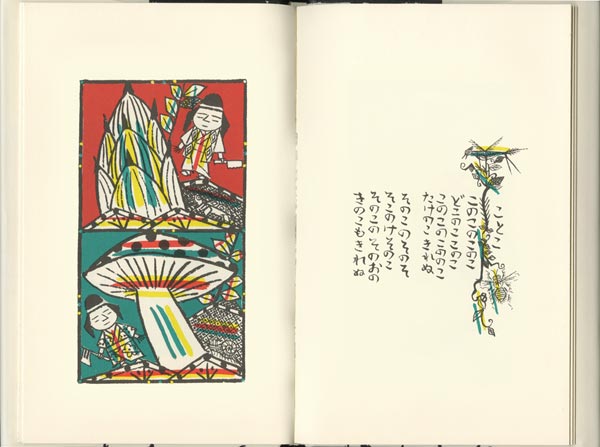 ことこ
このこのこのこ
どこのここのこ
このこのこののこ
たけのこきれぬ
そのこのそのそ
そこのけそのこ
そのこのそのおの
きのこもきれぬ